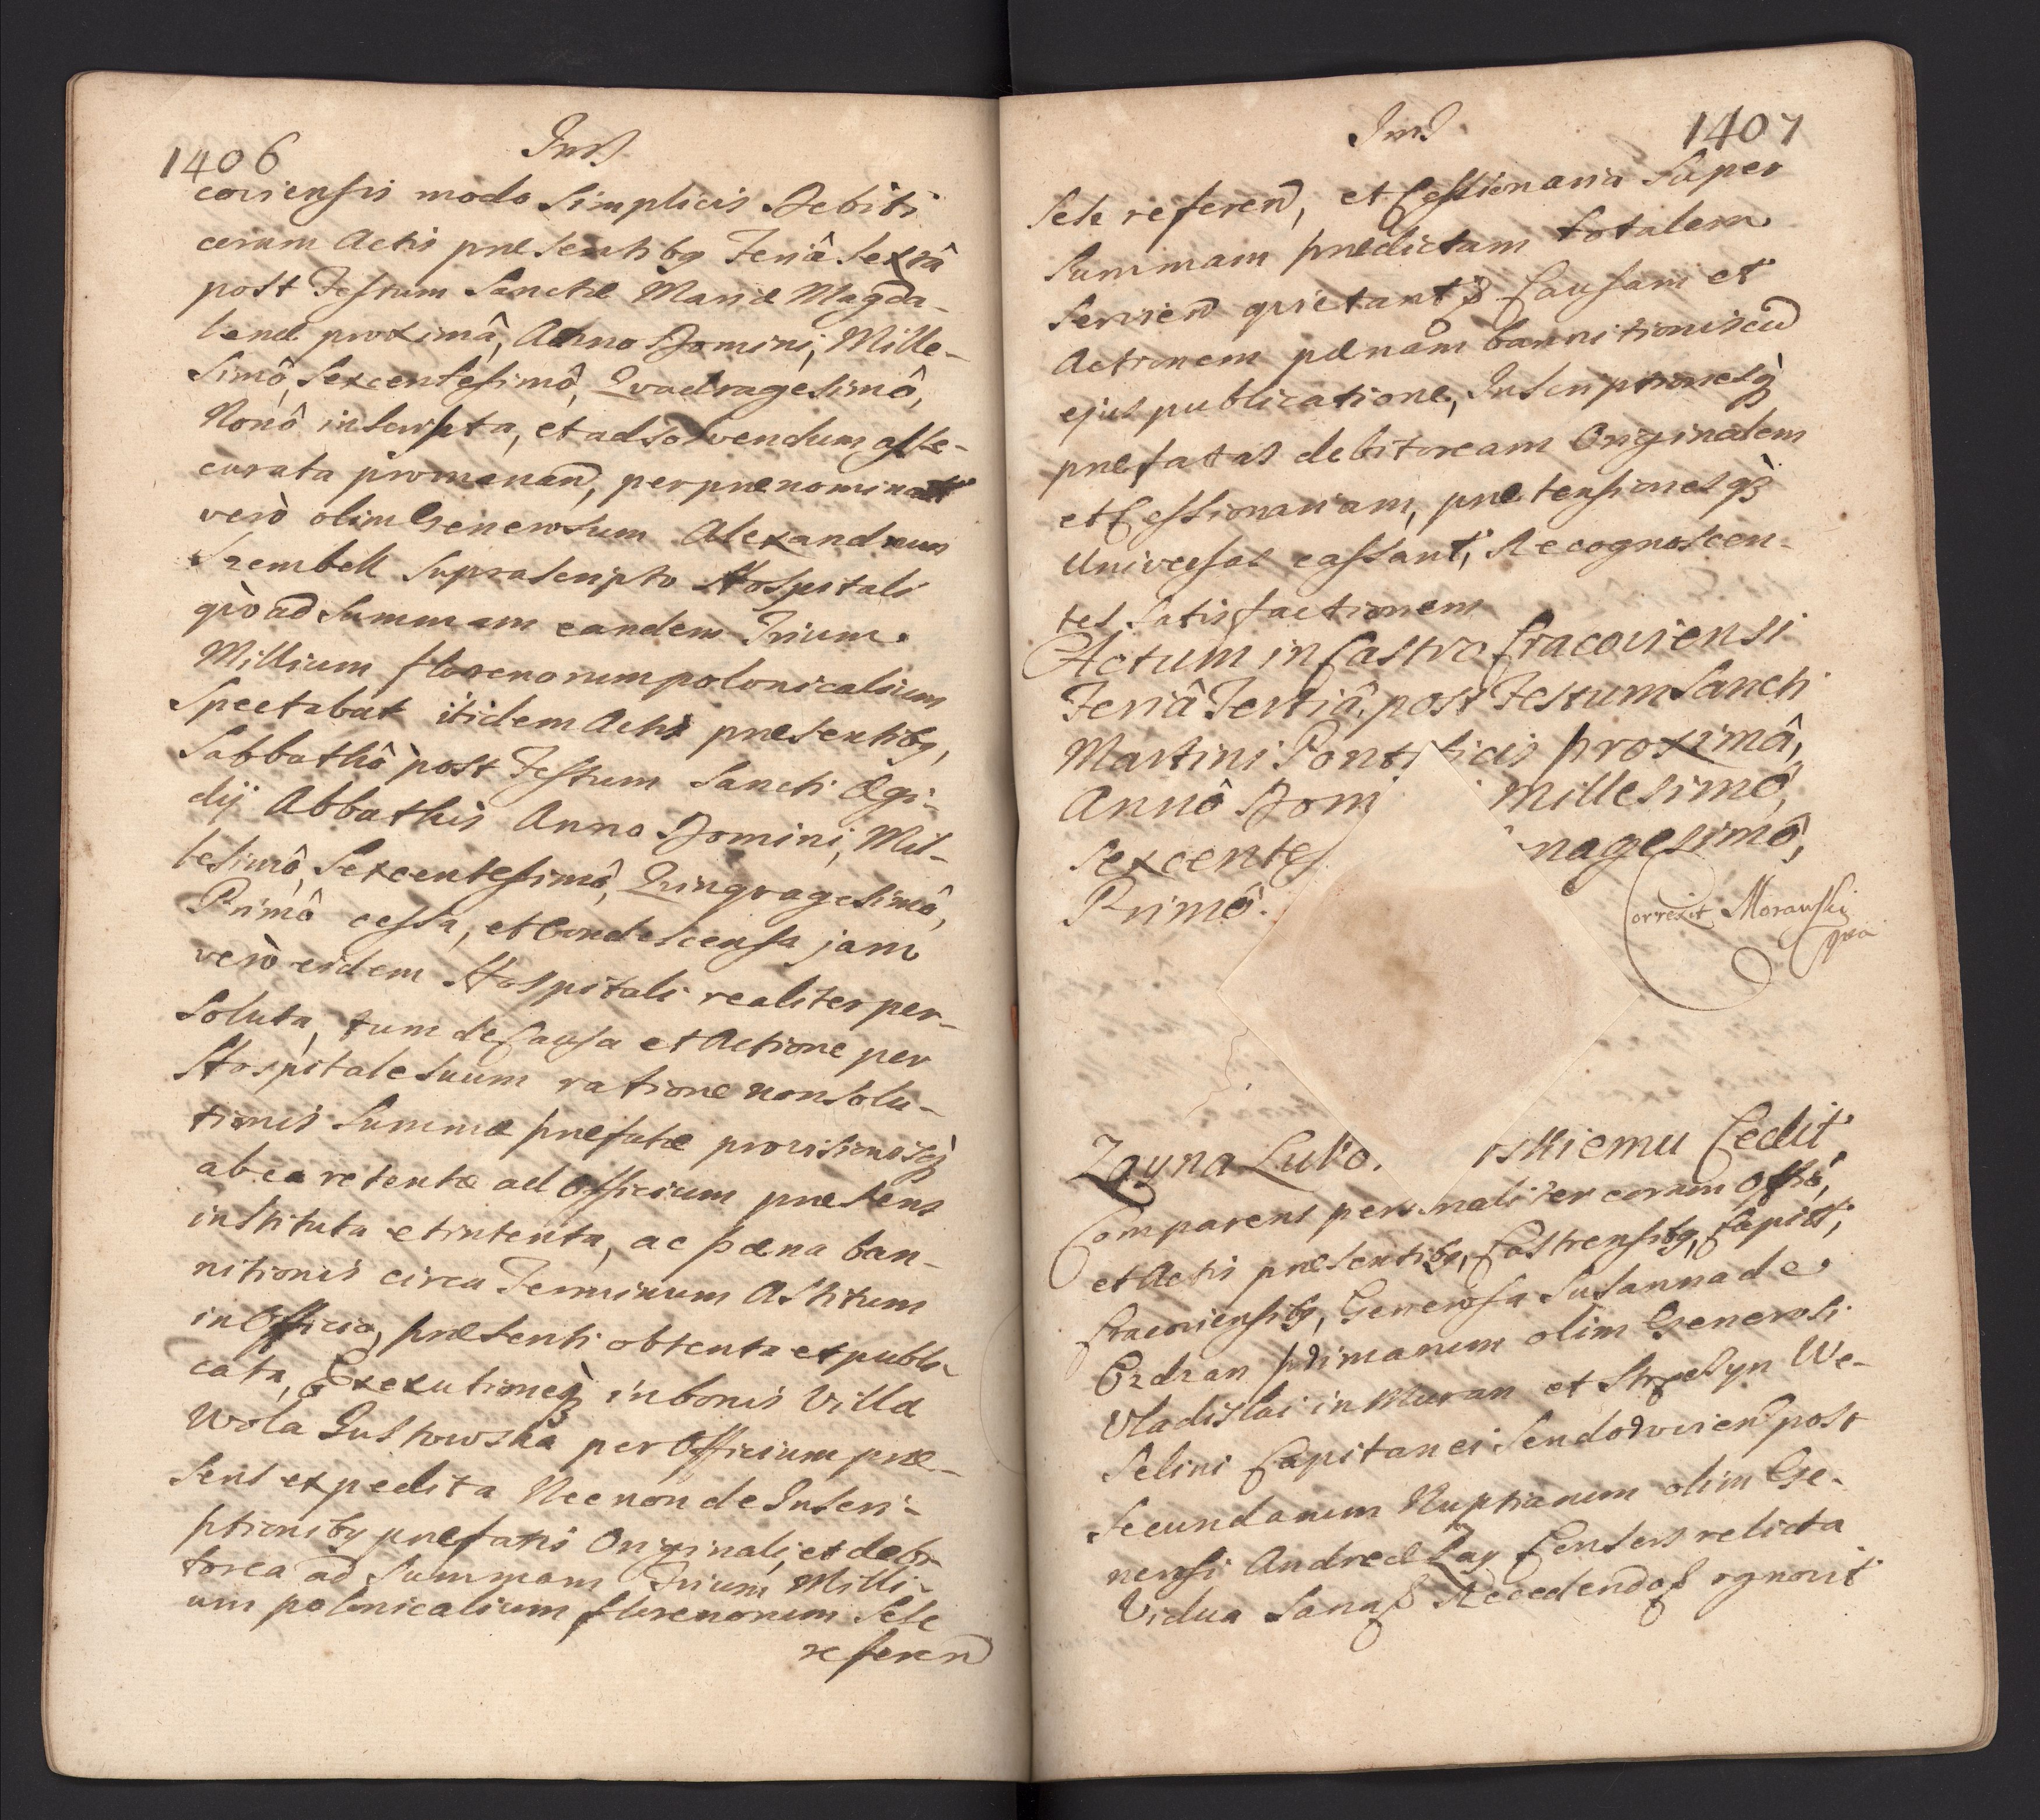 1406
Ind.
coviensis modo Simplicis Debiti
coram Actis præsentibq Feriâ Sextâ
post Festum Sanctæ Mariæ Magda-
lenæ proximâ, Anno Domini, Mille-
simô, Sexcentesimô, Qvadragesimô,
Nonô inscripta, et ad solvendum asse-
curata promanand, per prænominat
verò olim Generosum Alexandrum
Szembek suprascripto Hospitali
qvoad Summam eandem Trium
Millium florenorum polonicalium
Spectabat itidem Actis præsentibq,
Sabbathô post Festum Sancti Ægi-
dij Abbathis Anno Domini, Mil-
lesimô, Sexcentesimô, Qvinqvagesimô,
Primô cessa, et Condescensa jam
verò eidem Hospitali realiter per-
soluta, tum de Causa et Actione per
Hospitale suum ratione non solu-
tionis Summæ præfatæ provisionisq̀
ab ea retentæ ad Officium præsens
instituta et intenta, ac pæna ban-
nitionis circa Terminum Astitum
in Officio præsenti obtenta et publi-
cata, Executioneq̀ in bonis Villæ
Wola Justowska per Officium præ-
sens expedita Necnon de Inscri-
ptionibq præfatis Originali, et debi-
torea ad Summam Trium Milli-
um polonicalium florenorum Sese
referen
Ind.
1407
Sese referen, et Cessionaria Super
Summam prædictam totalem
Servien quietant Causam et
Actionem pænam bannitionis cu
ejus publicatione, Inscriptionesq̀
præfatas debitoream Originalem
et Cessionariam, prætensionesq̀
Universas cassant, Recognoscen-
tes Satisfactionem
Actum in Castro Cracoviensi
Feriâ Tertiâ post Festum Sancti
Martini Pontificis proximâ,
Annô Dom Millesimô,
Sexcente nagesimô,
Primô.
Correxit Morawski
Zayna Lubo skiemu Cedit
Comparens personaliter coram Offô,
et Actis præsentibq, Castrensibq, Capitt,
Cracoviensibq, Generosa Susanna de
Erdzan primarum olim Generosi
Vladislai in Muran et Strzelyn We-
selini Capitanei Sendomirien post
Secundarum Nuptiarum olim Ge-
nerosi Andreæ Zay Consors relicta
Vidua Sana Recedendo ognovit